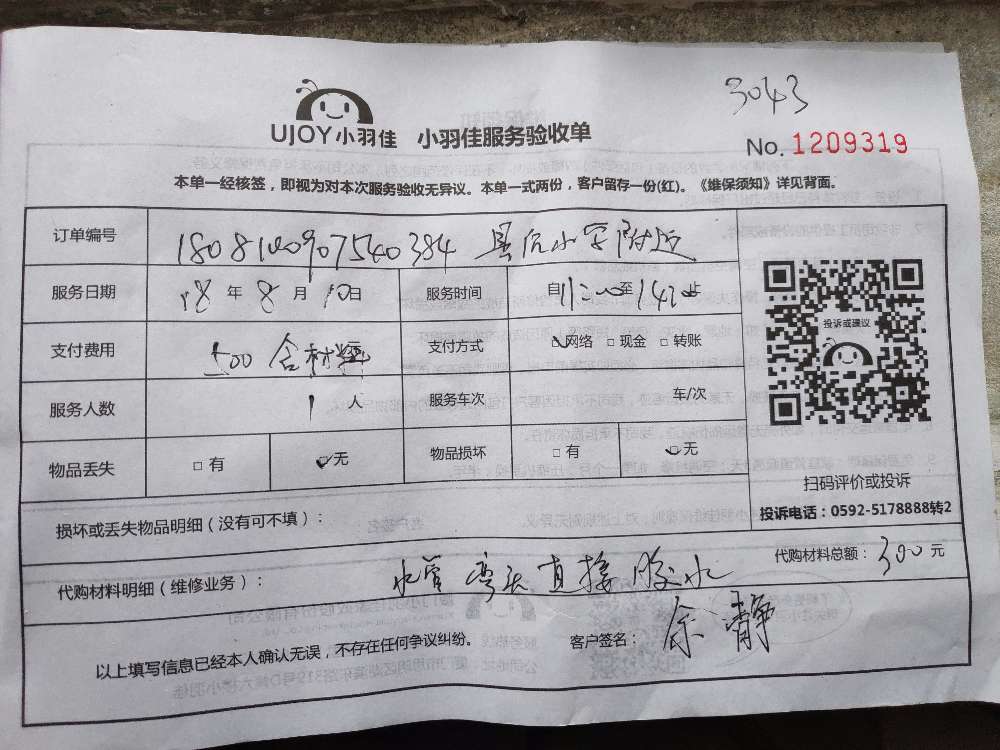 3043
UJOY小羽佳 小羽佳服务验收单
No. 1209319
本单一经核签，即视为对本次服务验收无异议。本单一式两份，客户留存一份(红)。《维保须知》详见背面。
订单编号 180810090754 0384 县后小学附近
服务日期 18 年 8 月 10 日 服务时间 自11:00至14:20止
支付费用 500 含材料 支付方式 ☑网络 □ 现金 □ 转账
服务人数 1 人 服务车次 车/次
物品丢失 □ 有 ☑无 物品损坏 □ 有 ☑无
投诉或建议
扫码评价或投诉
投诉电话：0592-5178888转2
损坏或丢失物品明细（没有可不填）：
代购材料明细（维修业务）： 水管 弯头 直接 胶水 代购材料总额：300 元
以上填写信息已经本人确认无误，不存在任何争议纠纷。 客户签名： 余静